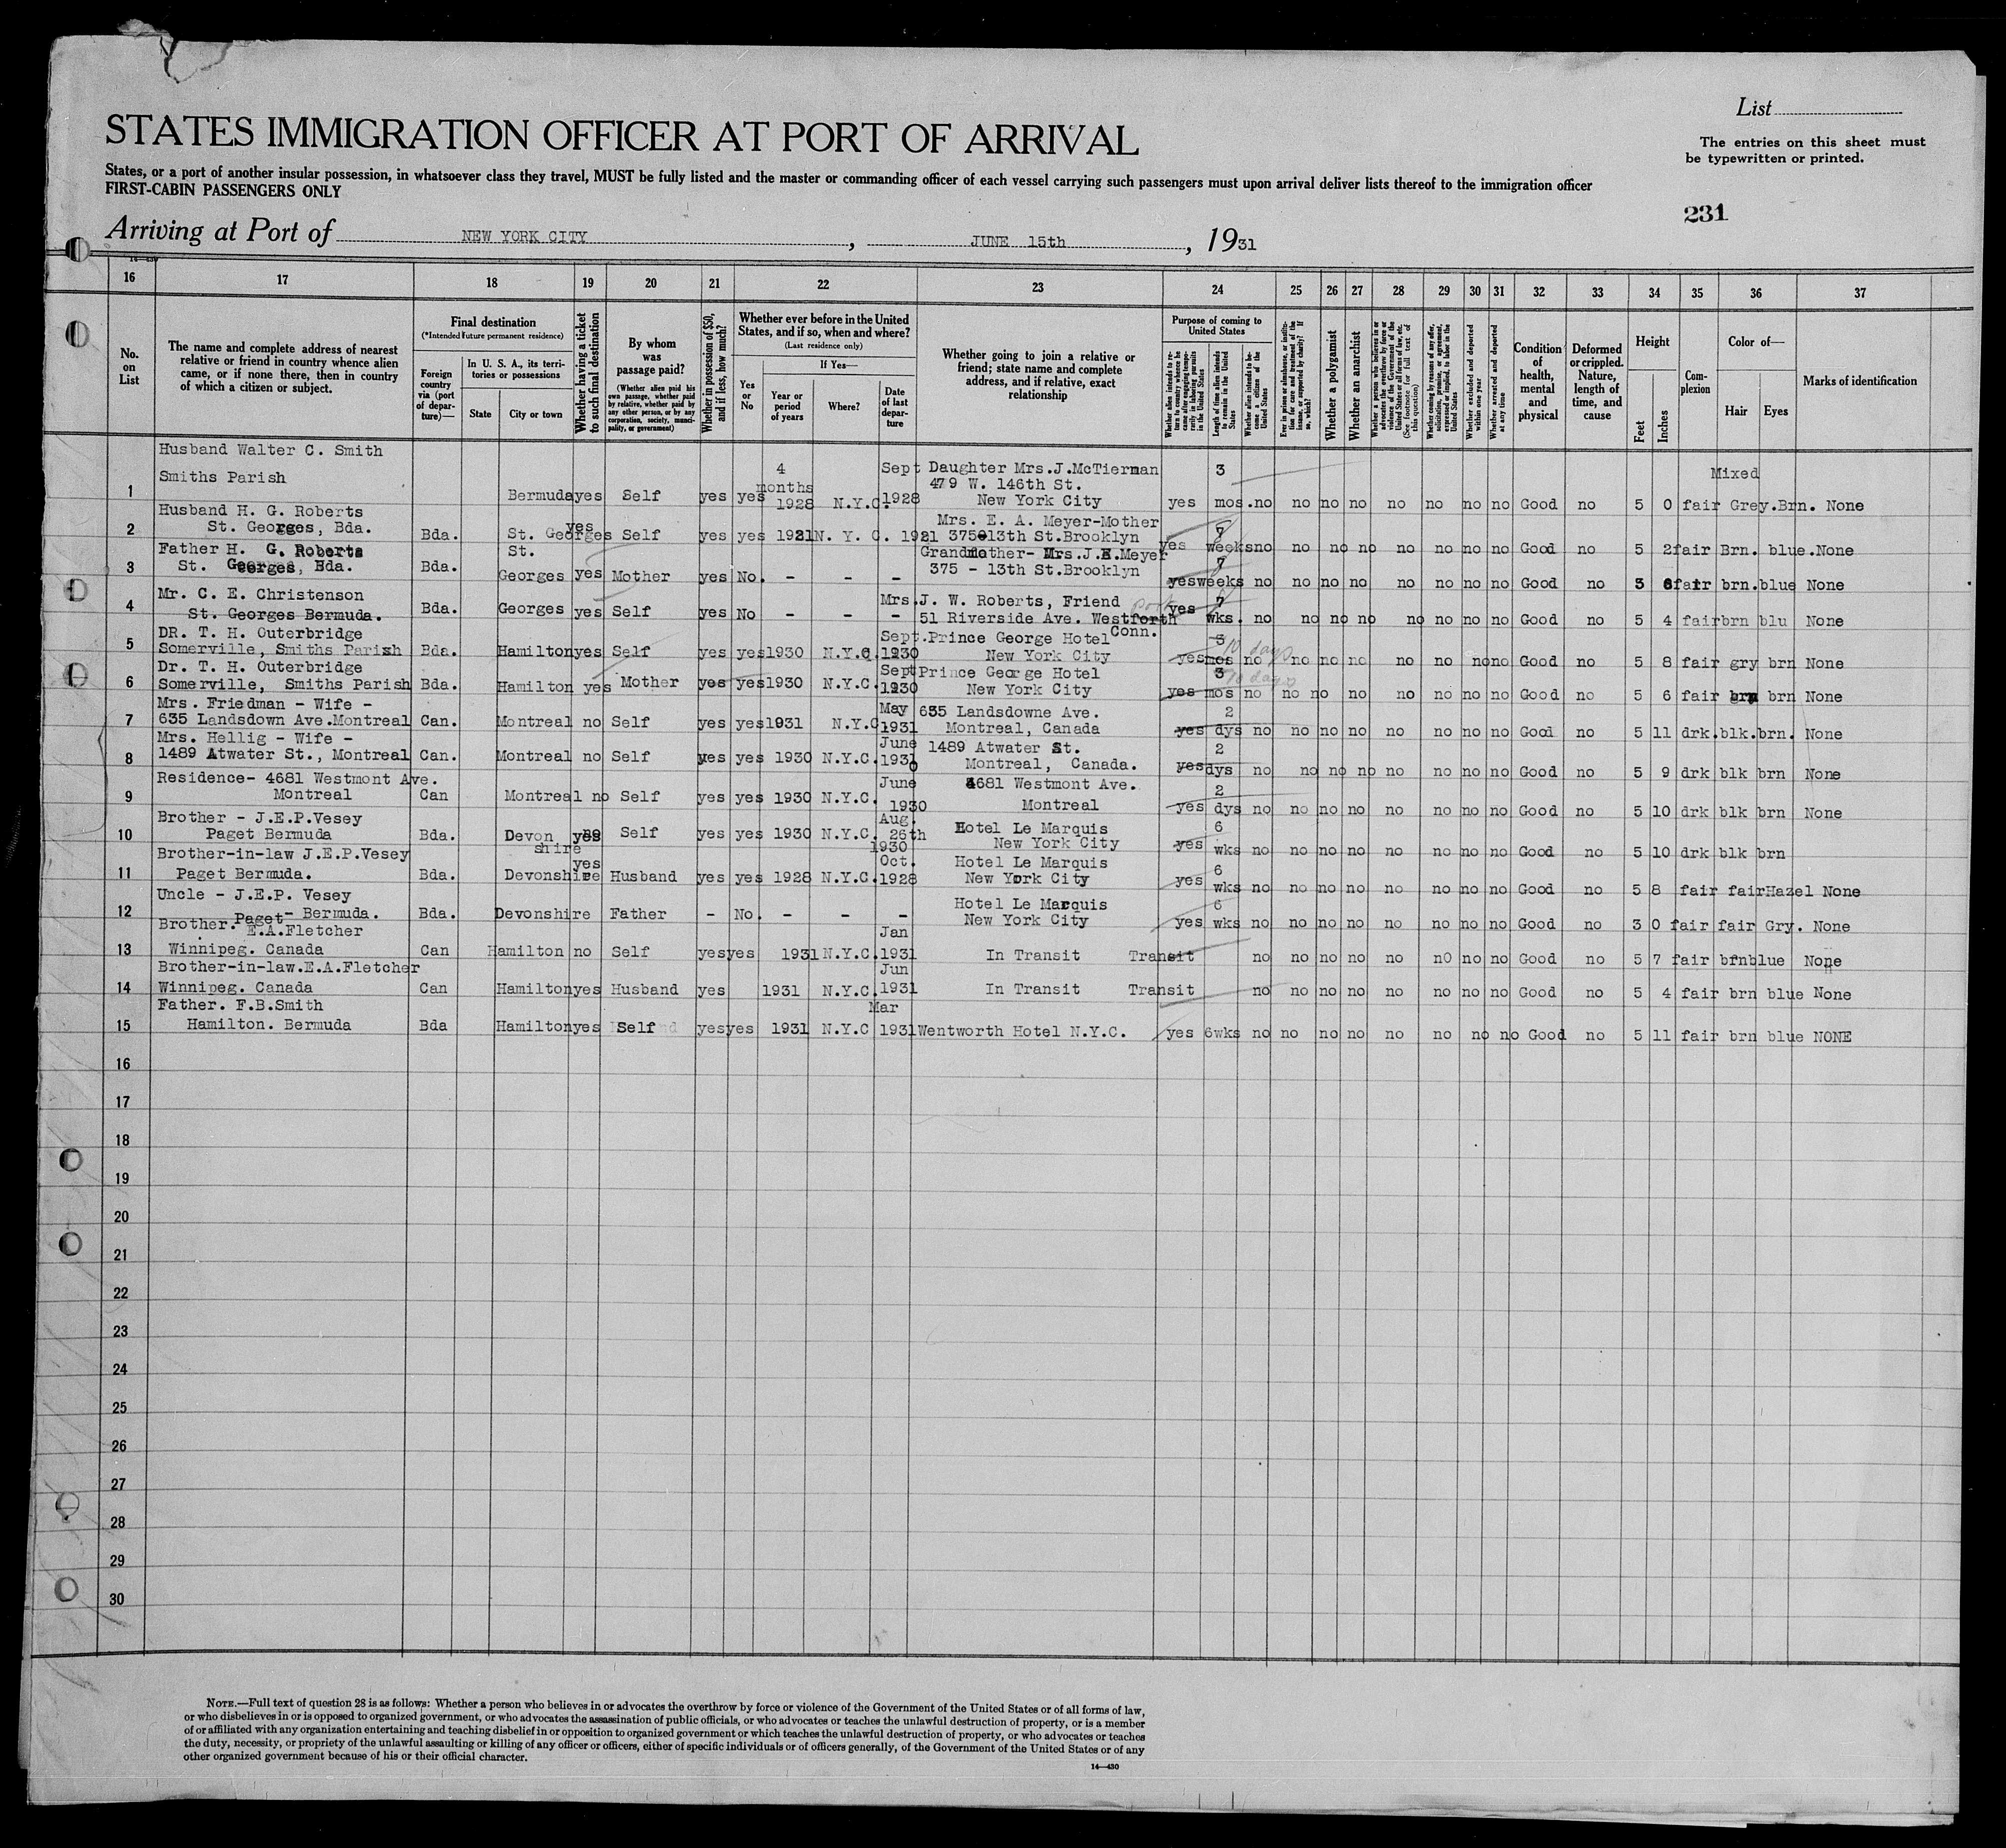 List
STATES IMMIGRATION OFFICER AT PORT OF ARRIVAL
The entries on this sheet must
be typewritten or printed.
States, or a port of another insular possession, in whatsoever class they travel, MUST be fully listed and the master or commanding officer of each vessel carrying such passengers must upon arrival deliver lists thereof to the immigration officer
FIRST-CABIN PASSENGERS ONLY
231
Arriving at Port of NEW YORK CITY, JUNE 15th, 1931
16 17 18 19 20 21 22 23 24 25 26 27 28 29 30 31 32 33 34 35 36 37
No. on List
The name and complete address of nearest
relative or friend in country whence alien
came, or if none there, then in country
of which a citizen or subject.
Final destination
(*Intended future permanent residence)
Foreign country via (port of departure)—
In U. S. A., its territories or possessions
State
City or town
Whether having a ticket to such final destination
By whom was passage paid?
(Whether alien paid his own passage, whether paid by relative, whether paid by any other person, or by any corporation, society, municipality, or government)
Whether in possession of $50, and if less, how much?
Whether ever before in the United
States, and if so, when and where?
(Last residence only)
Yes or No
If Yes—
Year or period of years
Where?
Date of last departure
Whether going to join a relative or
friend; state name and complete
address, and if relative, exact
relationship
Purpose of coming to United States
Length of time alien intends to remain in the United States
Whether alien intends to become a citizen of the United States
Whether a polygamist
Whether an anarchist
Whether excluded and deported within one year
Whether arrested and deported at any time
Condition of health, mental and physical
Deformed or crippled. Nature, length of time, and cause
Height
Feet
Inches
Complexion
Color of—
Hair
Eyes
Marks of identification
Husband Walter C. Smith
Smiths Parish
1 Bermuda yes Self yes yes 4 months 1928 N.Y.C. Sept 1928 Daughter Mrs.J.McTiernan
479 W. 146th St.
New York City yes 3 mos. no no no no no no no no Good no 5 0 fair Mixed Grey. Brn. None
Husband H. G. Roberts
2 St. Georges, Bda. Bda. St. Georges yes Self yes yes 1921 N. Y. C. 1921 Mrs. E. A. Meyer-Mother
375-13th St.Brooklyn yes 7 weeks no no no no no no no no Good no 5 2 fair Brn. blue. None
Father H. G. Roberts
3 St. Georges, Bda. Bda. St. Georges yes Mother yes No. - - - Grandmother- Mrs.J.E.Meyer
375 - 13th St.Brooklyn yes 7 weeks no no no no no no no no Good no 3 6 fair brn. blue None
Mr. C. E. Christenson
4 St. Georges Bermuda. Bda. Georges yes Self yes No - - - Mrs.J. W. Roberts, Friend
51 Riverside Ave. Westforth Conn. yes 7 wks. no no no no no no no no Good no 5 4 fair brn blu None
DR. T. H. Outerbridge
5 Somerville, Smiths Parish Bda. Hamilton yes Self yes yes 1930 N.Y.C. Sept. 1930 Prince George Hotel
New York City yes 3 mos 10 days no no no no no no no no Good no 5 8 fair gry brn None
Dr. T. H. Outerbridge
6 Somerville, Smiths Parish Bda. Hamilton yes Mother yes yes 1930 N.Y.C. Sept 1930 Prince George Hotel
New York City yes 3 mos 10 days no no no no no no no no Good no 5 6 fair brn brn None
Mrs. Friedman - Wife -
7 635 Landsdown Ave.Montreal Can. Montreal no Self yes yes 1931 N.Y.C May 1931 635 Landsdowne Ave.
Montreal, Canada yes 2 dys no no no no no no no no Good no 5 11 drk. blk. brn. None
Mrs. Hellig - Wife -
8 1489 Atwater St., Montreal Can. Montreal no Self yes yes 1930 N.Y.C. June 1930 1489 Atwater St.
Montreal, Canada. yes 2 dys no no no no no no no no Good no 5 9 drk blk brn None
Residence- 4681 Westmont Ave.
9 Montreal Can Montreal no Self yes yes 1930 N.Y.C. June 1930 4681 Westmont Ave.
Montreal yes 2 dys no no no no no no no no Good no 5 10 drk blk brn None
Brother - J.E.P.Vesey
10 Paget Bermuda Bda. Devonshire yes Self yes yes 1930 N.Y.C. Aug. 26th 1930 Hotel Le Marquis
New York City yes 6 wks no no no no no no no no Good no 5 10 drk blk brn
Brother-in-law J.E.P.Vesey
11 Paget Bermuda. Bda. Devonshire yes Husband yes yes 1928 N.Y.C. Oct. 1928 Hotel Le Marquis
New York City yes 6 wks no no no no no no no no Good no 5 8 fair fair Hazel None
Uncle - J.E.P. Vesey
12 Paget- Bermuda. Bda. Devonshire Father - No. - - - Hotel Le Marquis
New York City yes 6 wks no no no no no no no no Good no 3 0 fair fair Gry. None
Brother. E.A.Fletcher
13 Winnipeg. Canada Can Hamilton no Self yes yes 1931 N.Y.C. Jan 1931 In Transit Transit no no no no no no no no Good no 5 7 fair brn blue None
Brother-in-law.E.A.Fletcher
14 Winnipeg. Canada Can Hamilton yes Husband yes 1931 N.Y.C. Jun 1931 In Transit Transit no no no no no no no no Good no 5 4 fair brn blue None
Father. F.B.Smith
15 Hamilton. Bermuda Bda Hamilton yes Self yes yes 1931 N.Y.C Mar 1931 Wentworth Hotel N.Y.C. yes 6wks no no no no no no no no Good no 5 11 fair brn blue NONE
16
17
18
19
20
21
22
23
24
25
26
27
28
29
30
NOTE.—Full text of question 28 is as follows: Whether a person who believes in or advocates the overthrow by force or violence of the Government of the United States or of all forms of law,
or who disbelieves in or is opposed to organized government, or who advocates the assassination of public officials, or who advocates or teaches the unlawful destruction of property, or is a member
of or affiliated with any organization entertaining and teaching disbelief in or opposition to organized government or which teaches the unlawful destruction of property, or who advocates or teaches
the duty, necessity, or propriety of the unlawful assaulting or killing of any officer or officers, either of specific individuals or of officers generally, of the Government of the United States or of any
other organized government because of his or their official character.
14—430